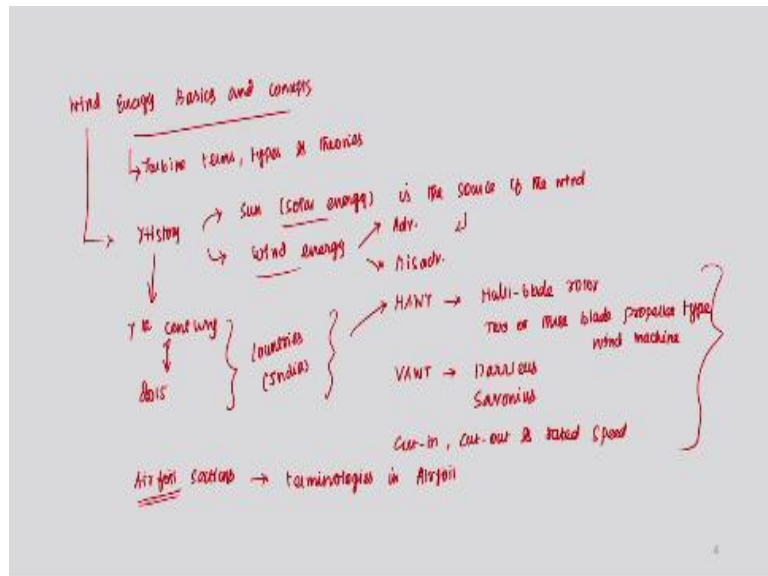 Wind Energy Basics and concepts
↳ Turbine terms, types & theories
→ History → Sun (solar energy) is the source of the wind
↳ Wind energy → Adv.
↘ Disadv.
7th century
↕
2015
Countries
(India)
HAWT → Multi-blade rotor
Two or three blade propeller type
wind machine
VAWT → Darrieus
Savonius
Cut-in, cut-out & rated speed
Airfoil sections → terminologies in Airfoil